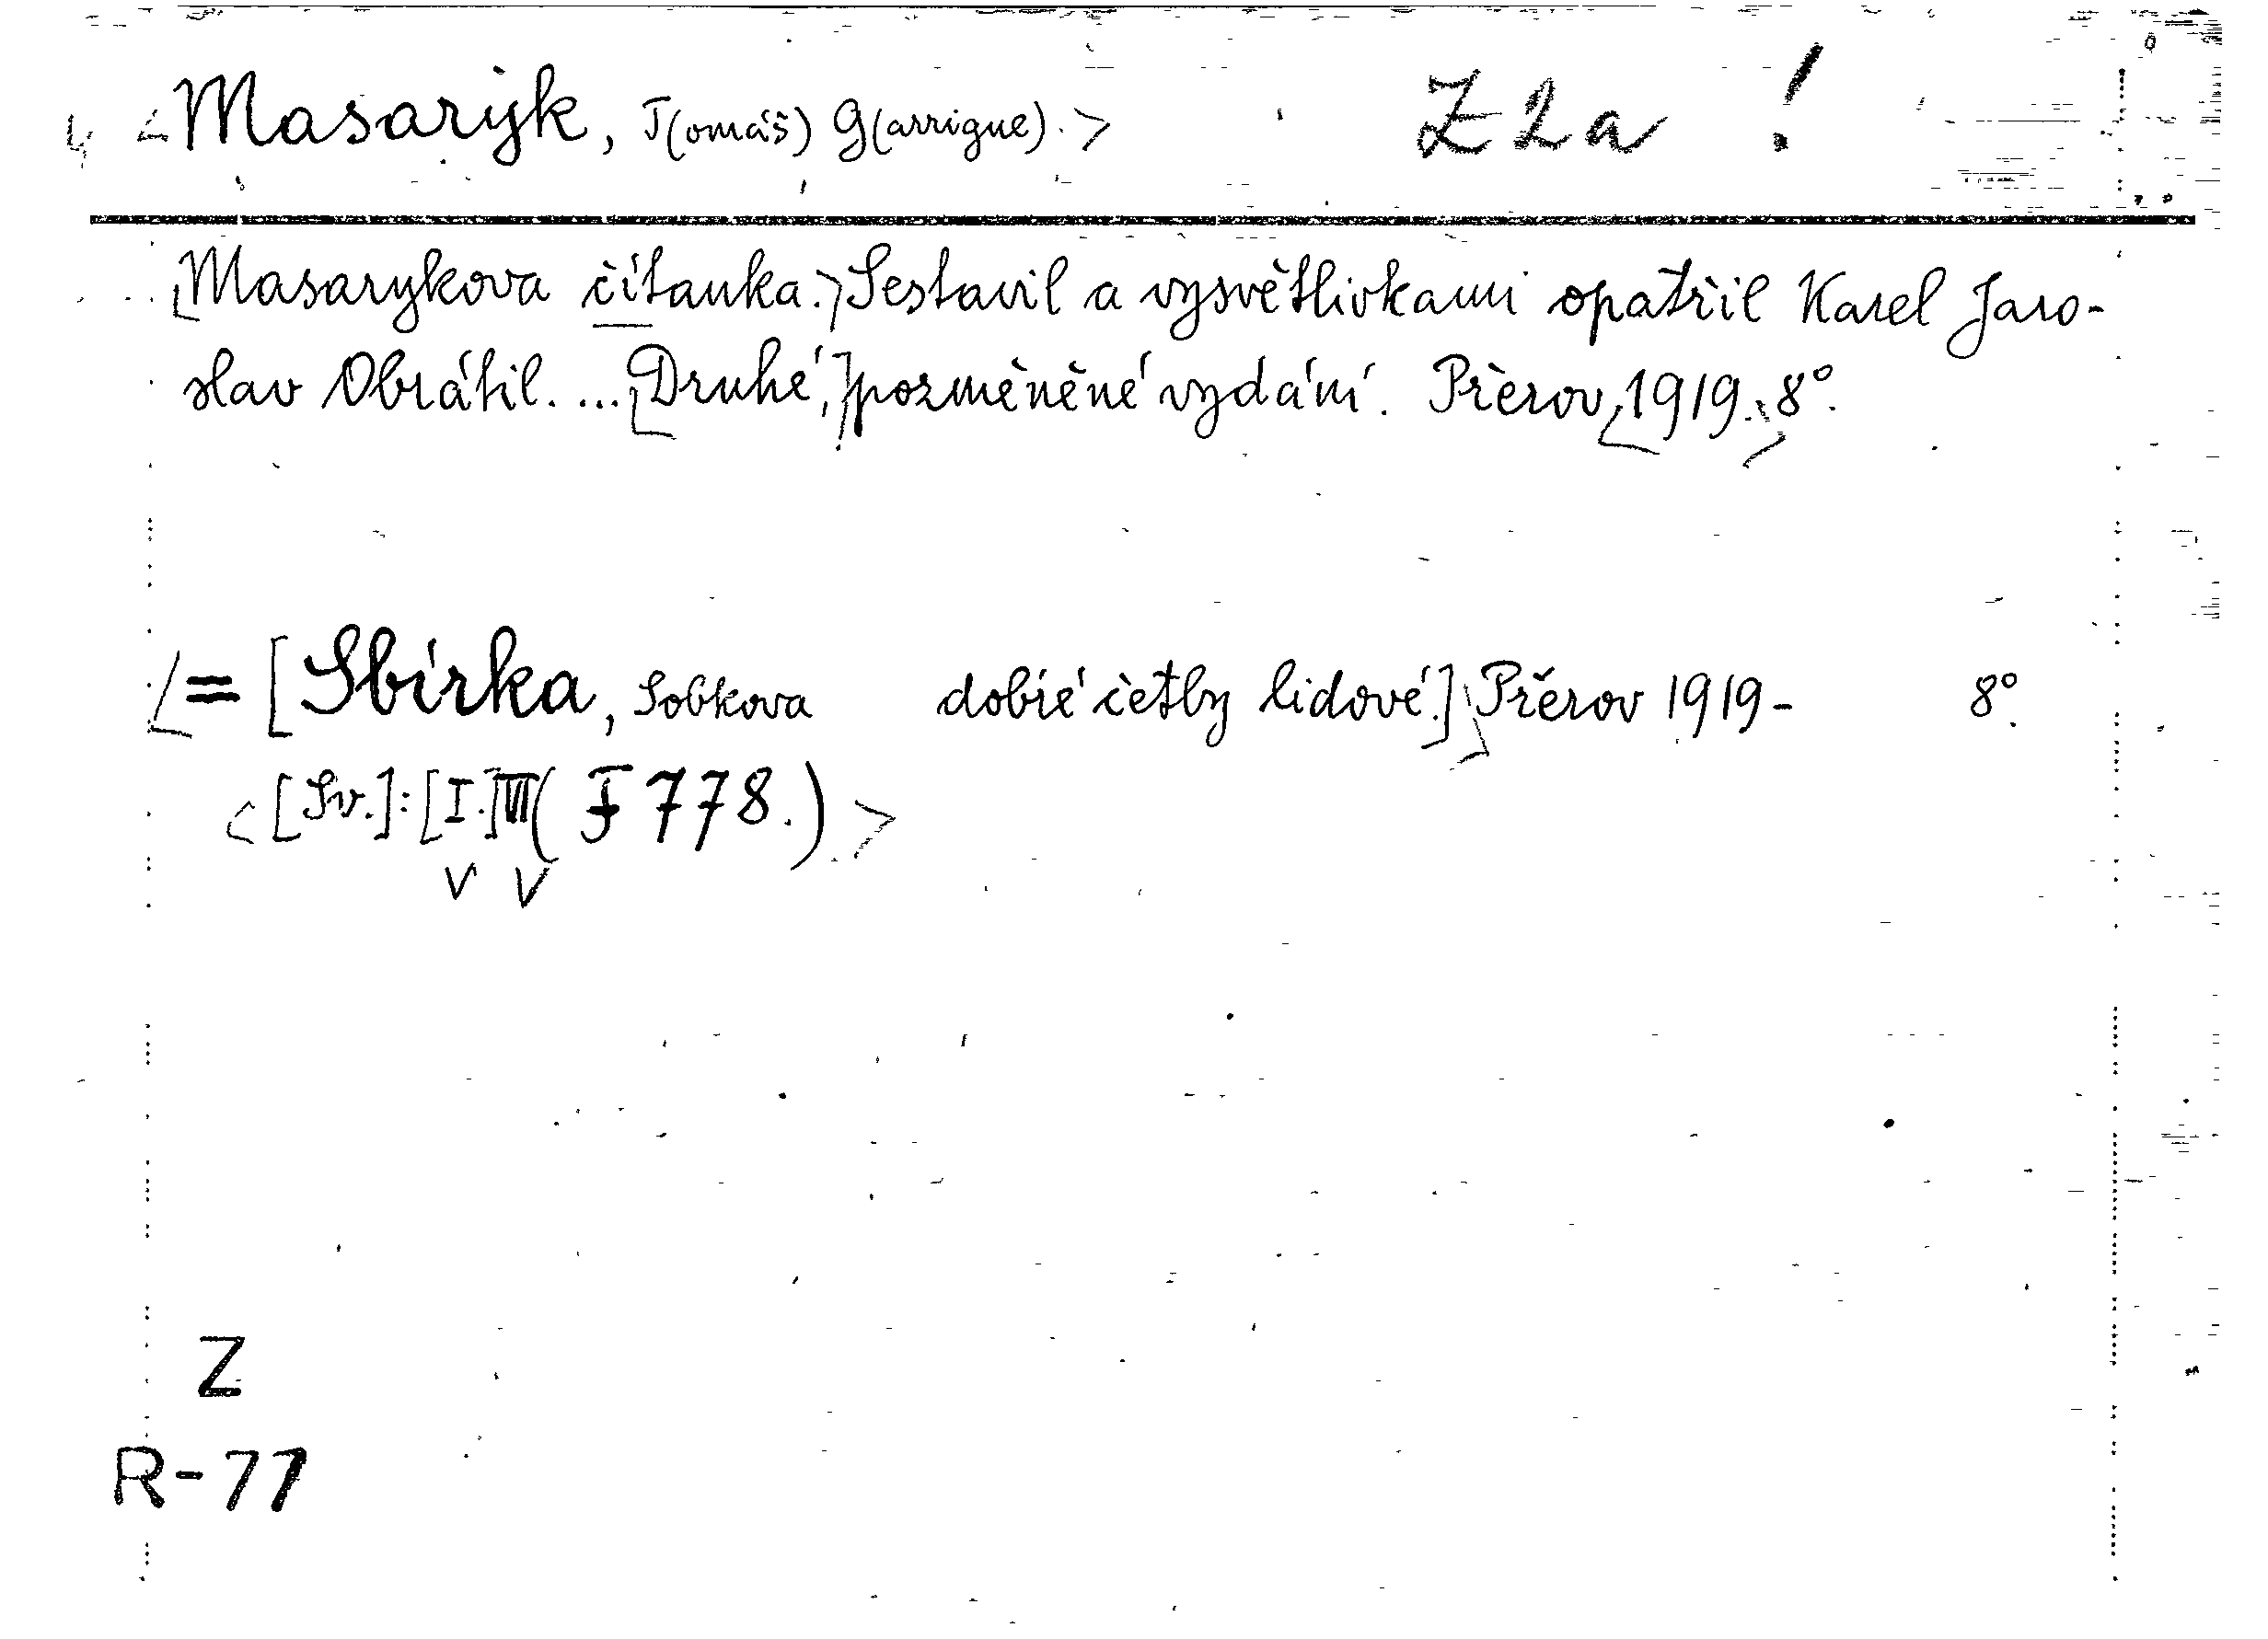 <Masaryk, T(omáš) G(arrigue).> Z 2 a !
[Masarykova čítanka.] Sestavil a vysvětlivkami opatřil Karel Jaro-
slav Obrátil. ... [Druhé,] pozměněné vydání. Přerov <1919.> 8°.
<= [Sbírka, Sobkova dobré četby lidové.]> Přerov 1919- 8°.
<[Sv.]: [I.] VII ( F 778.)>
V V
Z
R-77